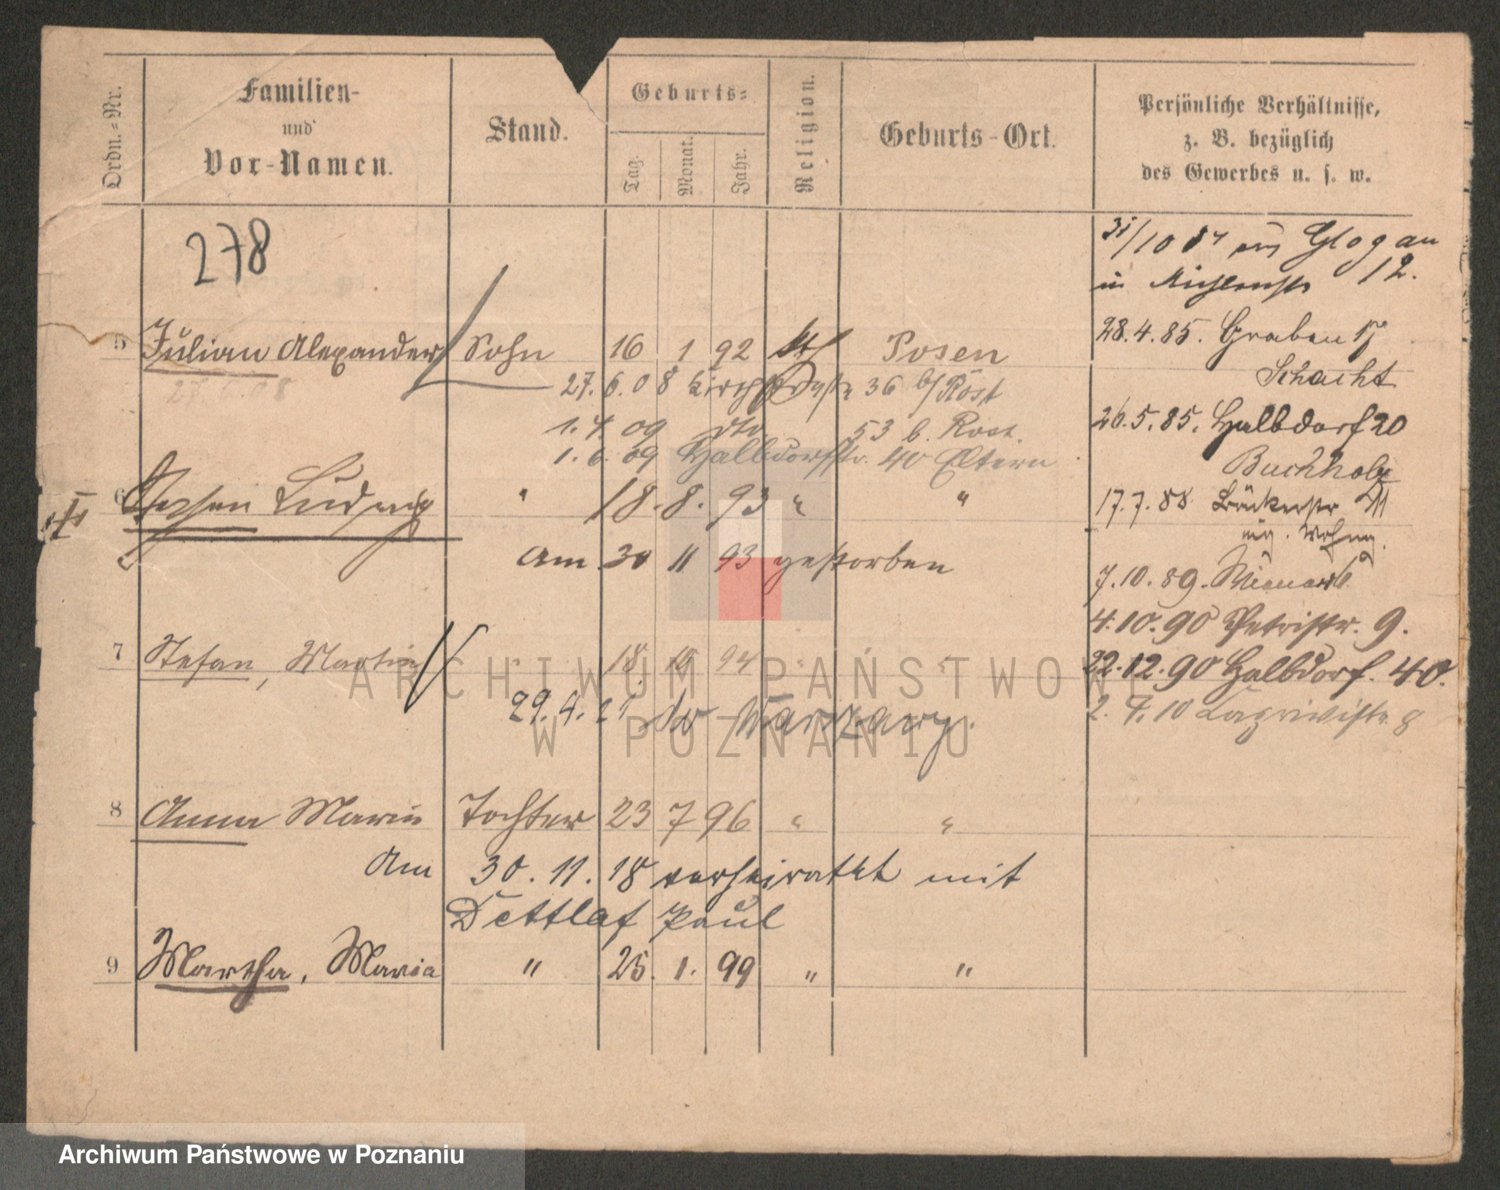 Ordn.-Nr.
Familien-
und
Vor-Namen.
Stand.
Geburts-
Tag.
Monat.
Jahr.
Religion.
Geburts-Ort.
Persönliche Verhältnisse,
z. B. bezüglich
des Gewerbes u. s. w.
278
31/10 84 aus Glogau
in 12.
5 Julian Alexander Sohn 16 1 92 Posen
28.4.85. Graben
Schacht
27.6.08 36 b/Rost
1.4.09 dto 53 b. Rost.
26.5.85. Halbdorf 20
Buchholz
1.6.09 Halbdorfstr. 40 Eltern
6 Ludwig " 18. 8. 93 " "
17.7.88 Bäckerstr
eig. Wohng.
am 30 11 93 gestorben
7.10.89.
4.10.90 Petristr. 9.
7 Stefan, Martin " 18. 10 94 " "
22.12.90 Halbdorf. 40.
29.4.21 Warszawy.
2. 4. 10 8
8 Anna Maria Tochter 23 7 96 " "
Am 30. 11. 18 verheiratet mit
Dettlaf Paul
9 Martha, Maria " 25. 1. 99 " "
ARCHIWUM PAŃSTWOWE
W POZNANIU
Archiwum Państwowe w Poznaniu